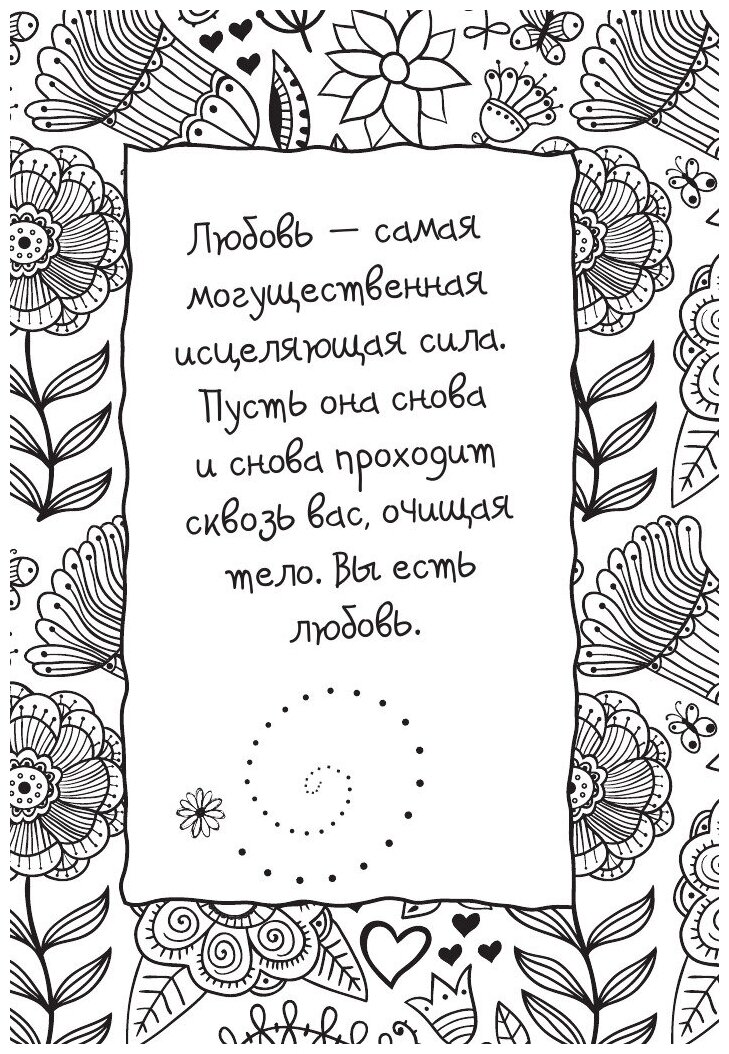 Любовь — самая
могущественная
исцеляющая сила.
Пусть она снова
и снова проходит
сквозь вас, очищая
тело. Вы есть
любовь.